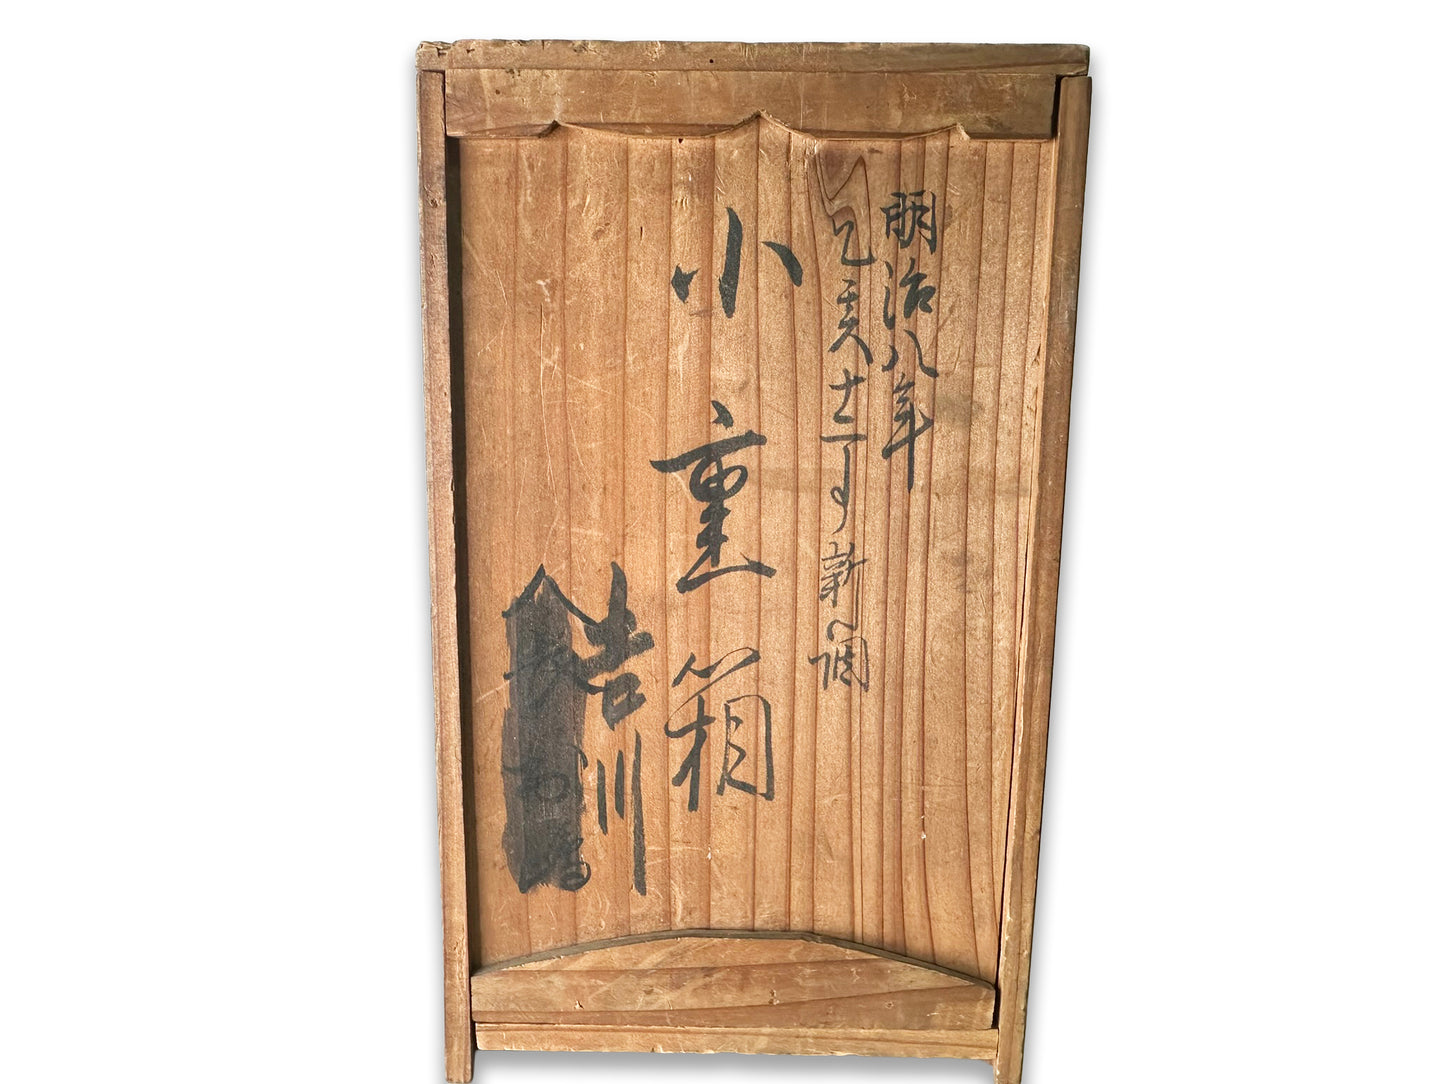 明治八年
乙亥十二月新調
小重箱
吉川